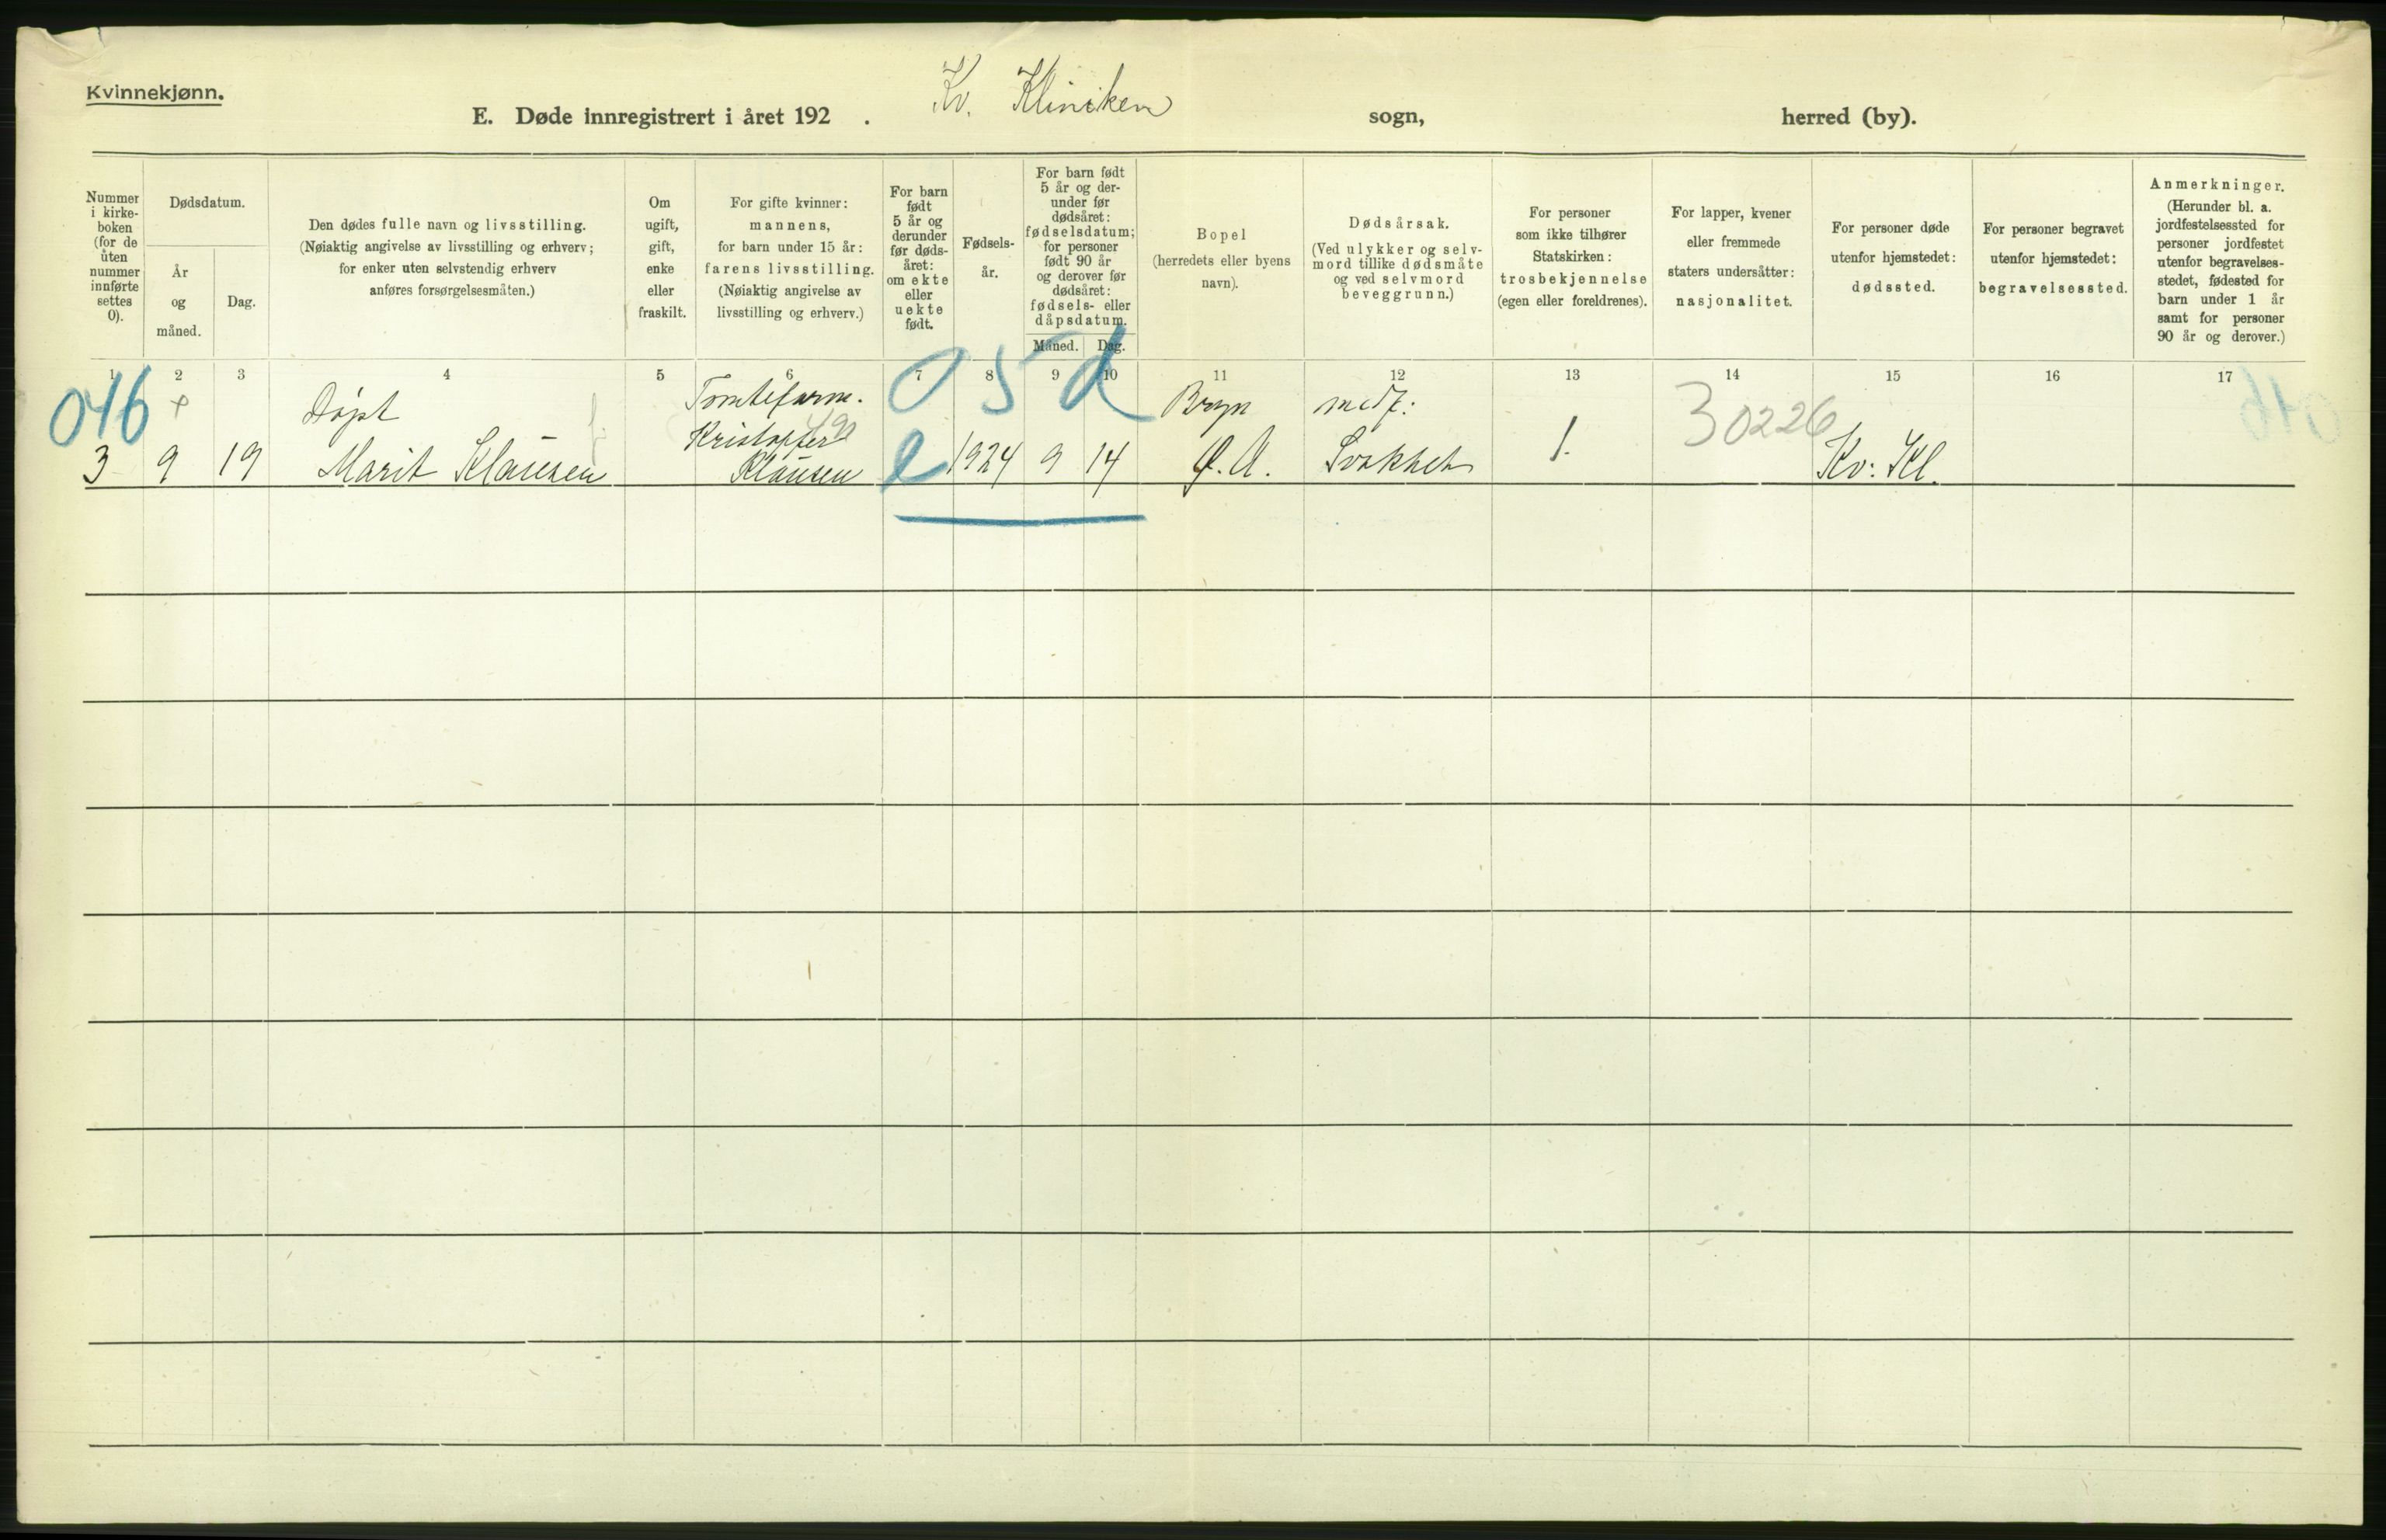 Kvinnekjønn.
Kv. Kliniken
E. Døde innregistrert i året 192 . sogn, herred (by).
Nummer
i kirke-
boken
(for de
uten
nummer
innførte
settes
0).
Dødsdatum.
År
og
måned.
Dag.
Den dødes fulle navn og livsstilling.
(Nøiaktig angivelse av livsstilling og erhverv;
for enker uten selvstendig erhverv
anføres forsørgelsesmåten.)
Om
ugift,
gift,
enke
eller
fraskilt.
For gifte kvinner:
mannens,
for barn under 15 år:
farens livsstilling.
(Nøiaktig angivelse av
livsstilling og erhverv.)
For barn
født
5 år og
derunder
før døds-
året:
om ekte
eller
uekte
født.
Fødsels-
år.
For barn født
5 år og der-
under før
dødsåret:
fødselsdatum;
for personer
født 90 år
og derover før
dødsåret:
fødsels- eller
dåpsdatum.
Måned. Dag.
Bopel
(herredets eller byens
navn).
Dødsårsak.
(Ved ulykker og selv-
mord tillike dødsmåte
og ved selvmord
beveggrunn.)
For personer
som ikke tilhører
Statskirken:
trosbekjennelse
(egen eller foreldrenes).
For lapper, kvener
eller fremmede
staters undersåtter:
nasjonalitet.
For personer døde
utenfor hjemstedet:
dødssted.
For personer begravet
utenfor hjemstedet:
begravelsessted.
Anmerkninger.
(Herunder bl. a.
jordfestelsessted for
personer jordfestet
utenfor begravelses-
stedet, fødested for
barn under 1 år
samt for personer
90 år og derover.)
1 2 3 4 5 6 7 8 9 10 11 12 13 14 15 16 17
046 + Døpt 05 d Bryn medf:
Kristoffer 490 1. 30226
3 9 19 Marit Klausen Klausen e 1924 9 14 Ø. A. Svakhet Kv: Kl.